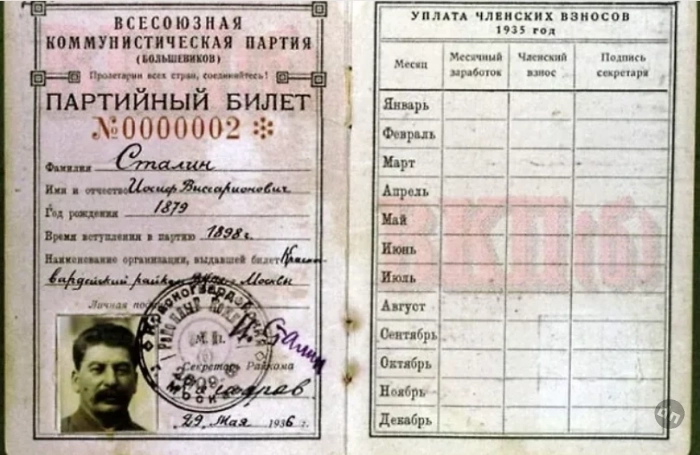 ВСЕСОЮЗНАЯ
КОММУНИСТИЧЕСКАЯ ПАРТИЯ
(БОЛЬШЕВИКОВ)
Пролетарии всех стран, соединяйтесь!
ПАРТИЙНЫЙ БИЛЕТ
№0000002
Фамилия Сталин
Имя и отчество Иосиф Виссарионович
Год рождения 1879
Время вступления в партию 1898 г.
Наименование организации, выдавшей билет Красно
вардейский райком Москвы
Личная
И. Сталин
М. П.
Секретарь Райкома
29 Мая 1936 г.
МОСКВА
УПЛАТА ЧЛЕНСКИХ ВЗНОСОВ
1935 год
Месяц Месячный заработок Членский взнос Подпись секретаря
Январь
Февраль
Март
Апрель
Май
Июнь
Июль
Август
Сентябрь
Октябрь
Ноябрь
Декабрь
ВКП(б)